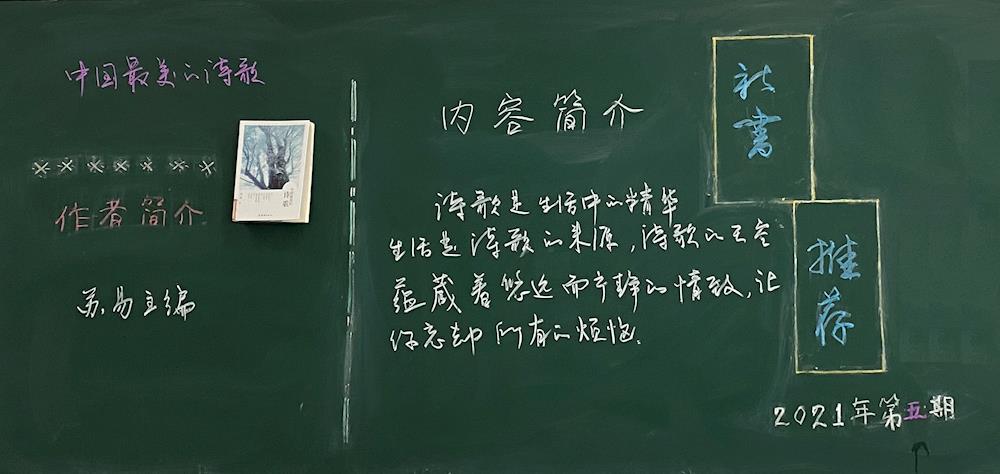 中国最美的诗歌
作者简介
苏易主编
诗歌
内容简介
诗歌是生活中的精华
生活是诗歌的来源,诗歌的天空
蕴藏着悠远而宁静的情致,让
你忘却所有的烦恼。
新书
推荐
2021年第五期